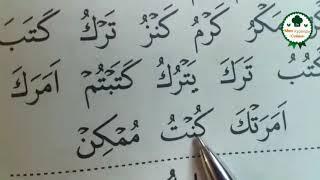 مَكَرُ كَرِمُ كَنْزُ تَرَكُ كَتَبَ
كُتُبُ تَرَكَ يَتْرُكُ كَتَبْتُمْ اَمَرَكَ
اَمَرَتْكَ كُنْتُ مُمْكِنْ